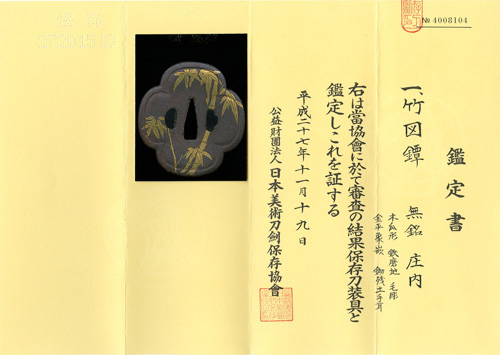 № 4008104
鑑定書
一、竹図鐔 無銘 庄内
木瓜形 鉄磨地 毛彫
金平象嵌
右は當協會に於て審査の結果保存刀装具と
鑑定しこれを証する
平成二十七年十一月十九日
公益財團法人 日本美術刀剣保存協會